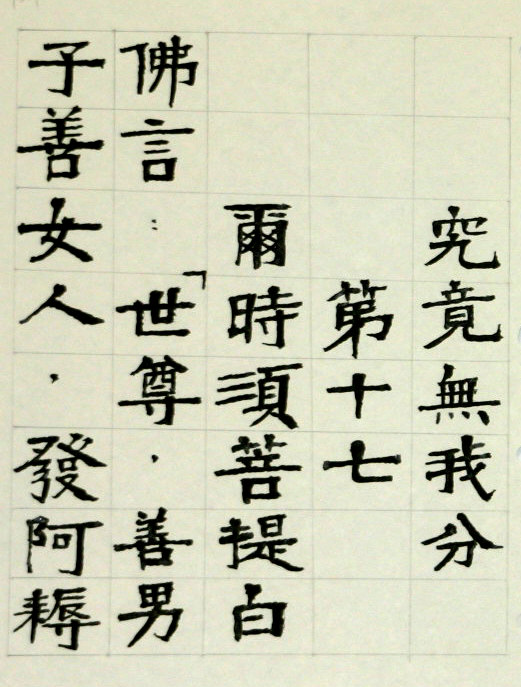 究竟無我分
第十七
爾時須菩提白
佛言：「世尊，善男
子善女人，發阿耨